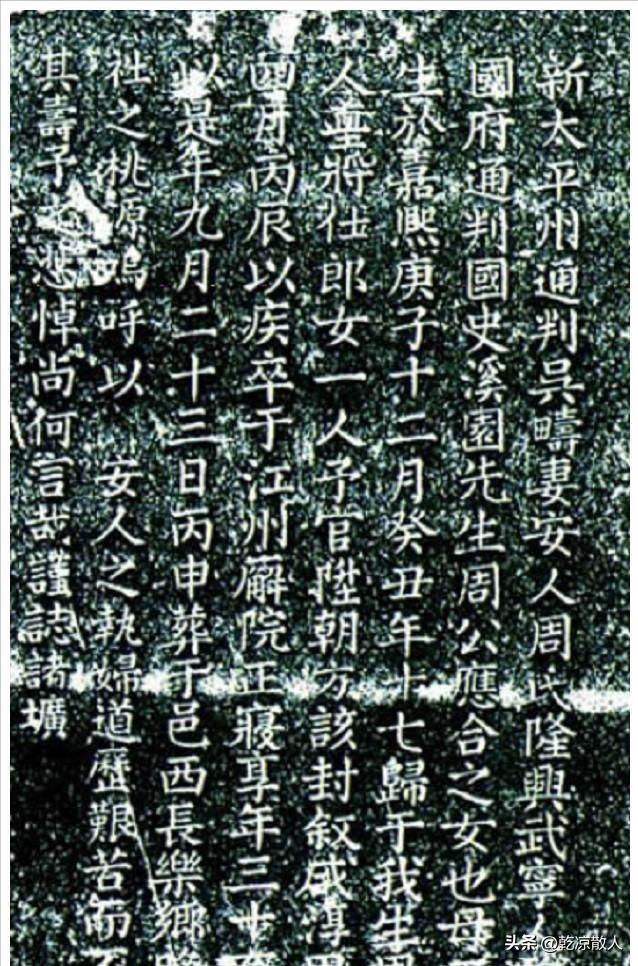 新太平州通判吳疇妻安人周氏隆興武寧人
國府通判國史溪園先生周公應合之女也母
生於嘉熙庚子十二月癸丑年十七歸于我生
人將仕郎女一人予官陞朝方該封叙咸淳
四月丙辰以疾卒于江州廨院正寢享年三十
以是年九月二十三日丙申葬于邑西長樂鄉
社之桃源嗚呼以 安人之執婦道歷艱苦而不
其壽予之悲悼尚何言哉謹誌諸壙
头条 @乾凉散人